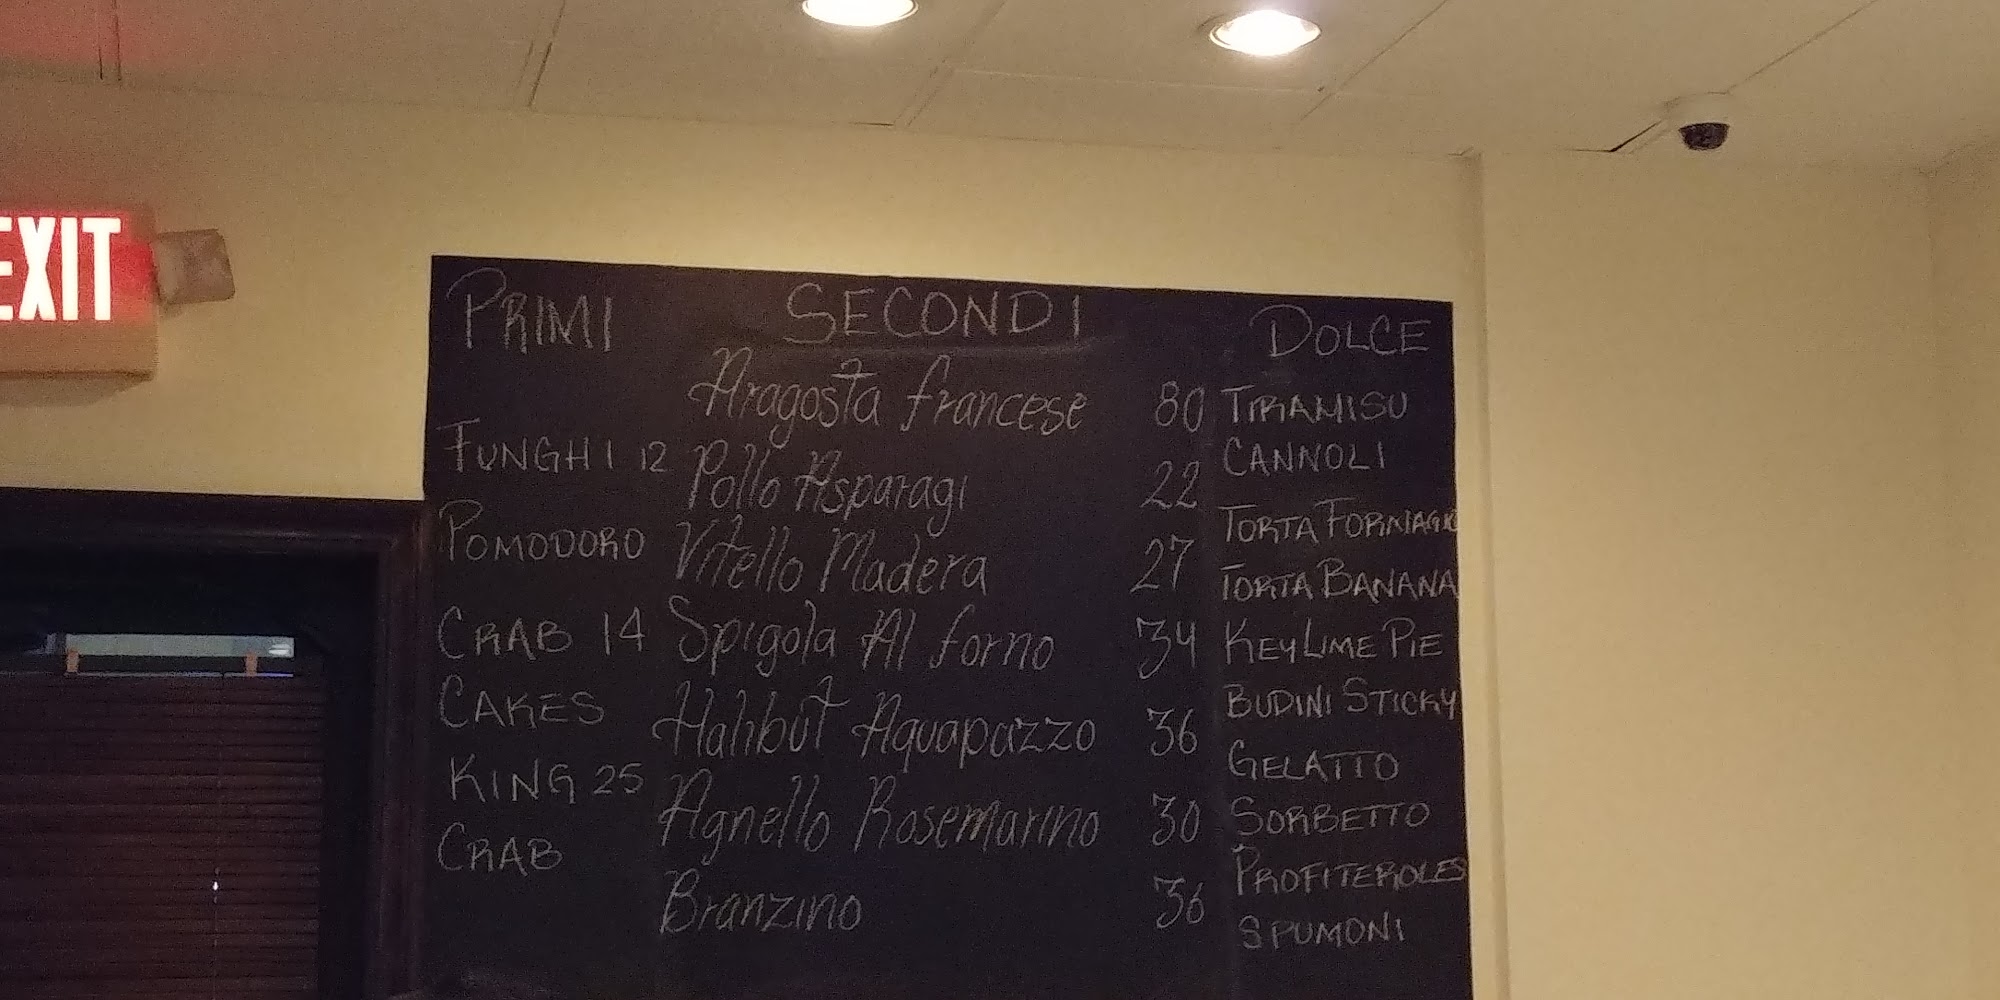 EXIT
PRIMI
FUNGHI 12
POMODORO
CRAB 14
CAKES
KING 25
CRAB
SECONDI
Aragosta francese 80
Pollo Asparagi 22
Vitello Madera 27
Spigola Al forno 34
Halibut Aquapazzo 36
Agnello Rosemarino 30
Branzino 36
DOLCE
TIRAMISU
CANNOLI
TORTA FORMAGIO
TORTA BANANA
KEY LIME PIE
BUDINI STICKY
GELATTO
SORBETTO
PROFITEROLES
SPUMONI